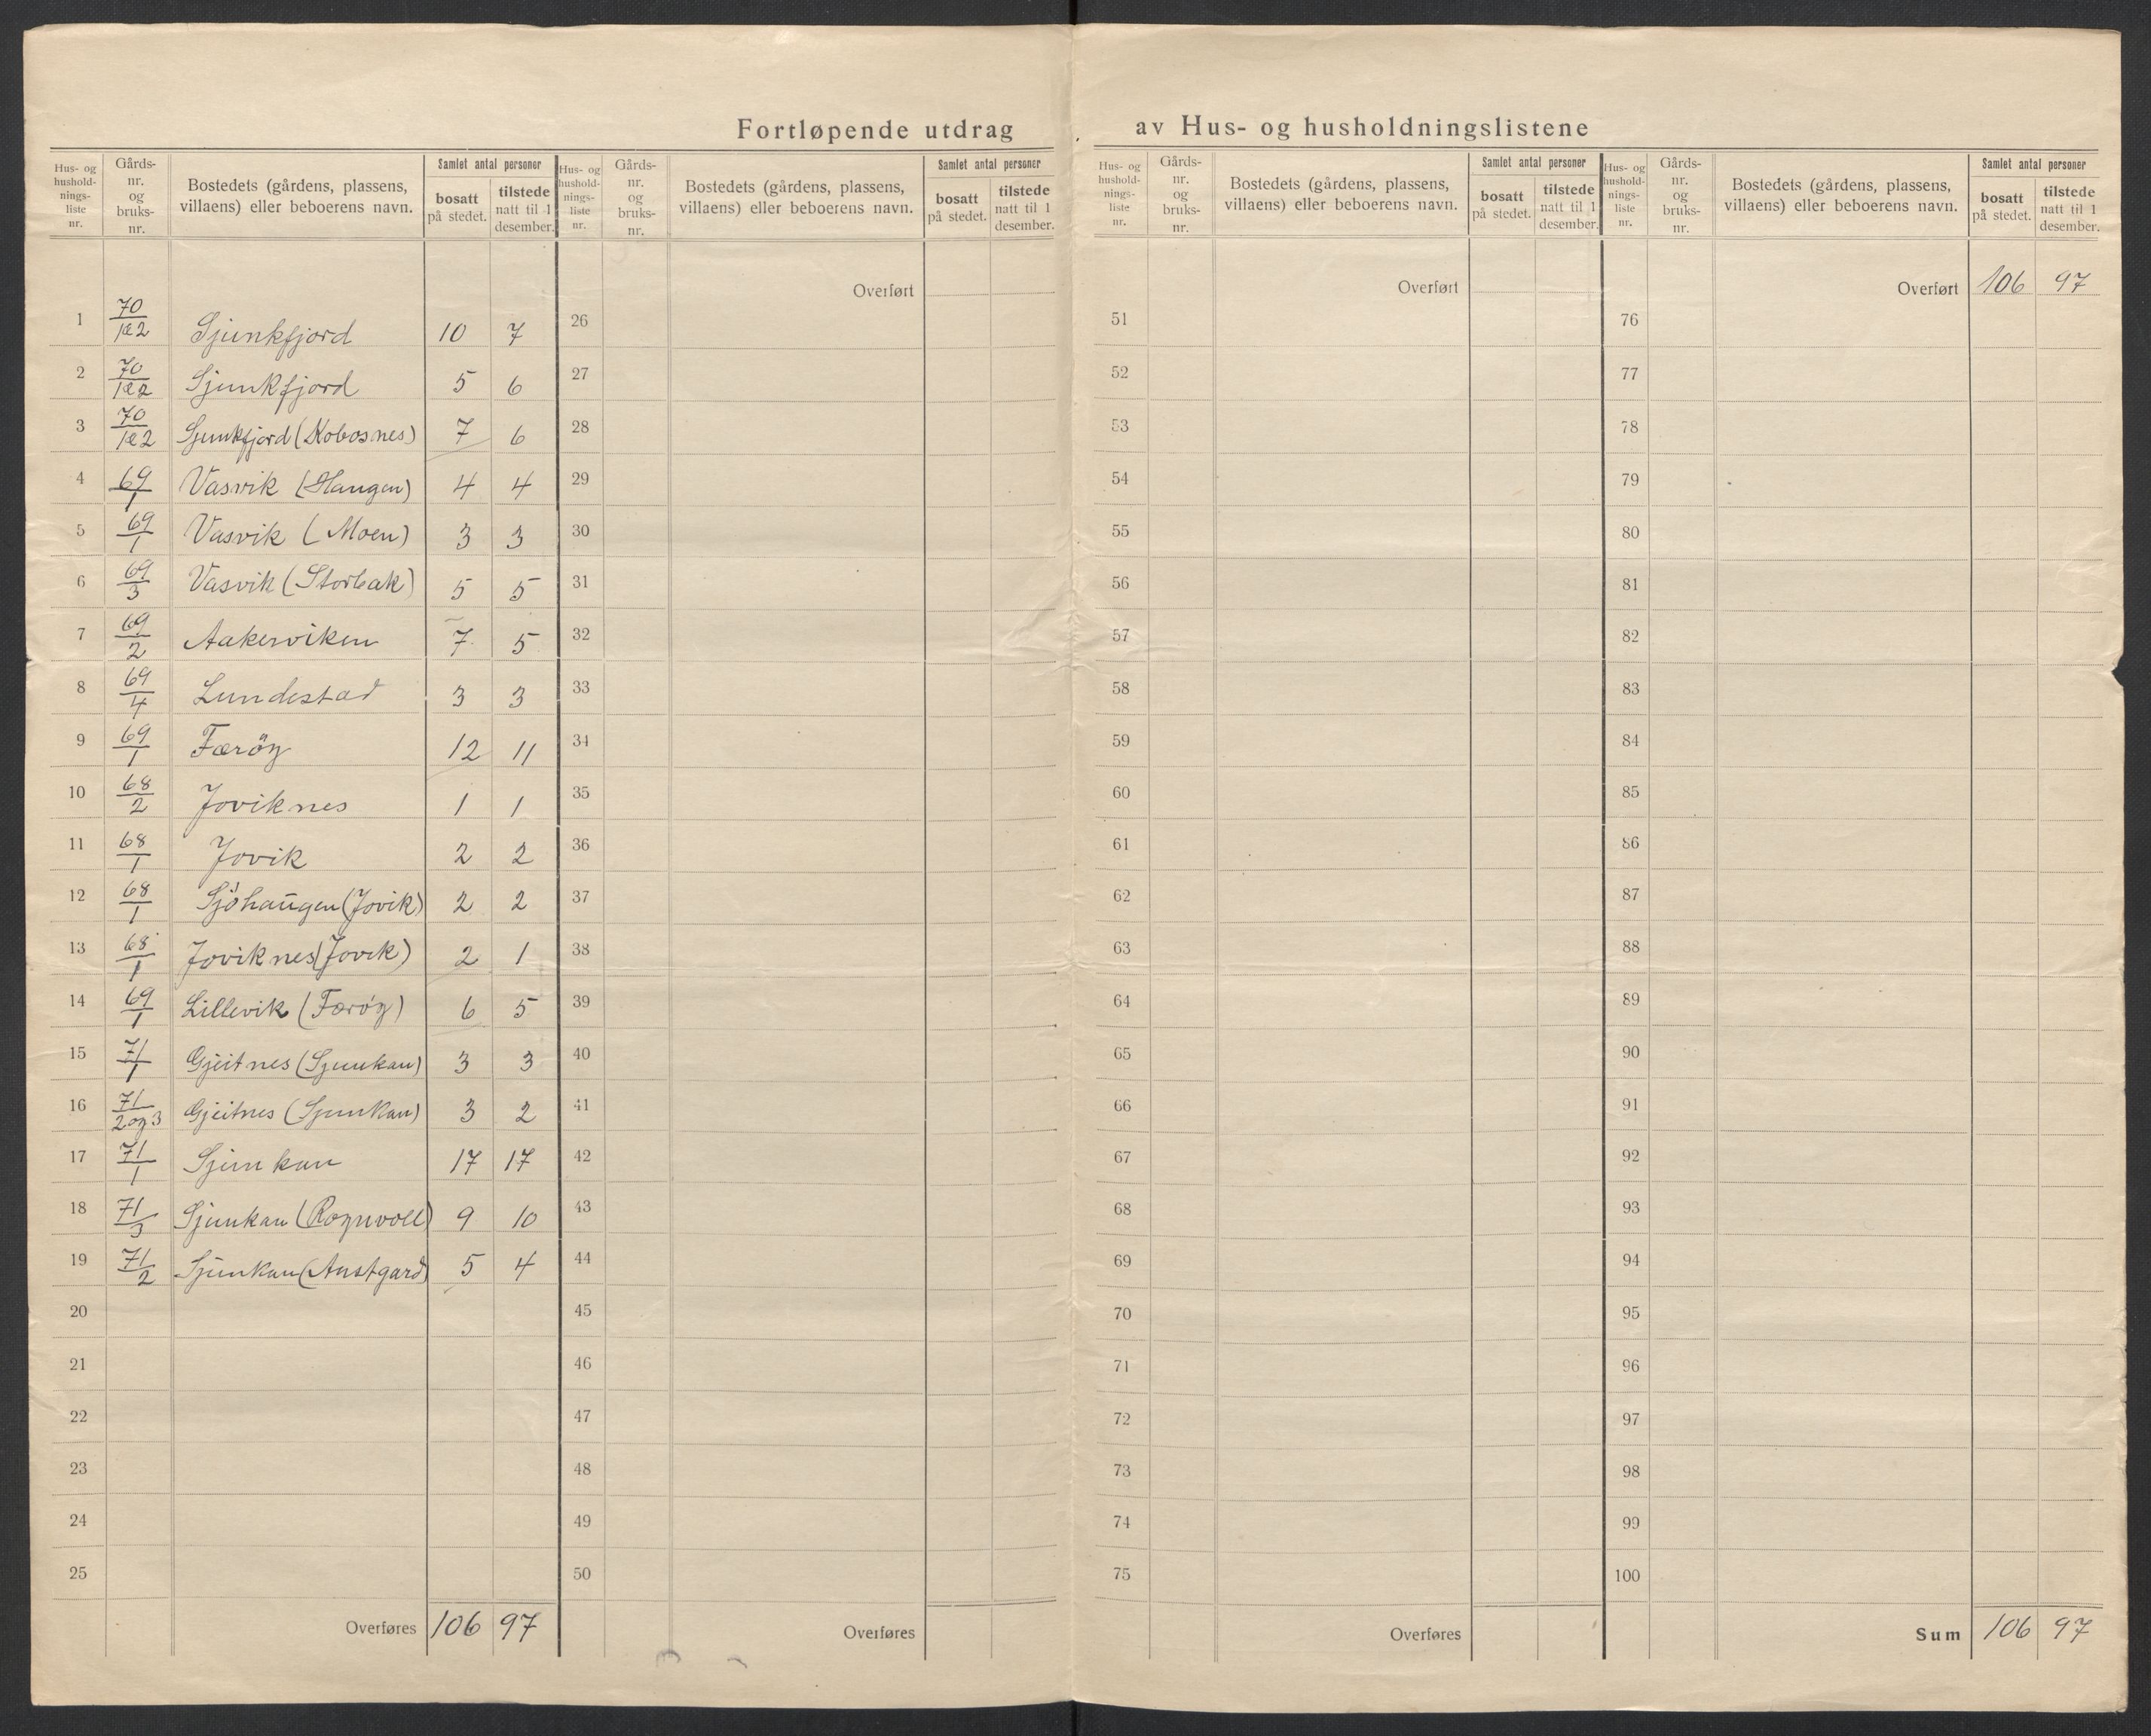 Fortløpende utdrag av Hus- og husholdningslistene
Hus- og hushold-nings-liste nr. Gårds-nr. og bruks-nr. Bostedets (gårdens, plassens, villaens) eller beboerens navn. Samlet antal personer bosatt på stedet. tilstede natt til 1 desember.
Hus- og hushold-nings-liste nr. Gårds-nr. og bruks-nr. Bostedets (gårdens, plassens, villaens) eller beboerens navn. Samlet antal personer bosatt på stedet. tilstede natt til 1 desember.
Hus- og hushold-nings-liste nr. Gårds-nr. og bruks-nr. Bostedets (gårdens, plassens, villaens) eller beboerens navn. Samlet antal personer bosatt på stedet. tilstede natt til 1 desember.
Hus- og hushold-nings-liste nr. Gårds-nr. og bruks-nr. Bostedets (gårdens, plassens, villaens) eller beboerens navn. Samlet antal personer bosatt på stedet. tilstede natt til 1 desember.
Overført Overført Overført 106 97
1 70/1&2 Sjunkfjord 10 7 26 51 76
2 70/1&2 Sjunkfjord 5 6 27 52 77
3 70/1&2 Sjunkfjord (Kobosnes) 7 6 28 53 78
4 69/1 Vasvik (Haugen) 4 4 29 54 79
5 69/1 Vasvik (Moen) 3 3 30 55 80
6 69/3 Vasvik (Storbak) 5 5 31 56 81
7 69/2 Aakerviken 7 5 32 57 82
8 69/4 Lundestad 3 3 33 58 83
9 69/1 Færöy 12 11 34 59 84
10 68/2 Joviknes 1 1 35 60 85
11 68/1 Jovik 2 2 36 61 86
12 68/1 Sjöhaugen (Jovik) 2 2 37 62 87
13 68/1 Joviknes (Jovik) 2 1 38 63 88
14 69/1 Lillevik (Færöy) 6 5 39 64 89
15 71/1 Gjeitnes (Sjunkan) 3 3 40 65 90
16 71/2 og 3 Gjeitnes (Sjunkan) 3 2 41 66 91
17 71/1 Sjunkan 17 17 42 67 92
18 71/3 Sjunkan (Rognvoll) 9 10 43 68 93
19 71/2 Sjunkan (Austgard) 5 4 44 69 94
20 45 70 95
21 46 71 96
22 47 72 97
23 48 73 98
24 49 74 99
25 50 75 100
Overføres 106 97 Overføres Overføres Sum 106 97